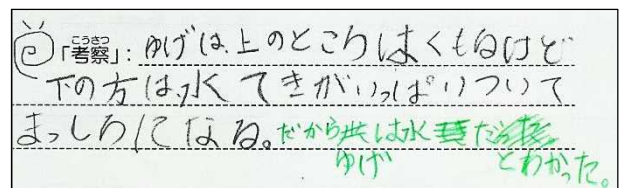 「考察」:ゆげは、上のところはくもるけど
こうさつ
下の方は、水てきがいっぱいついて
まっしろになる。だから は水 だ
ゆげ とわかった。